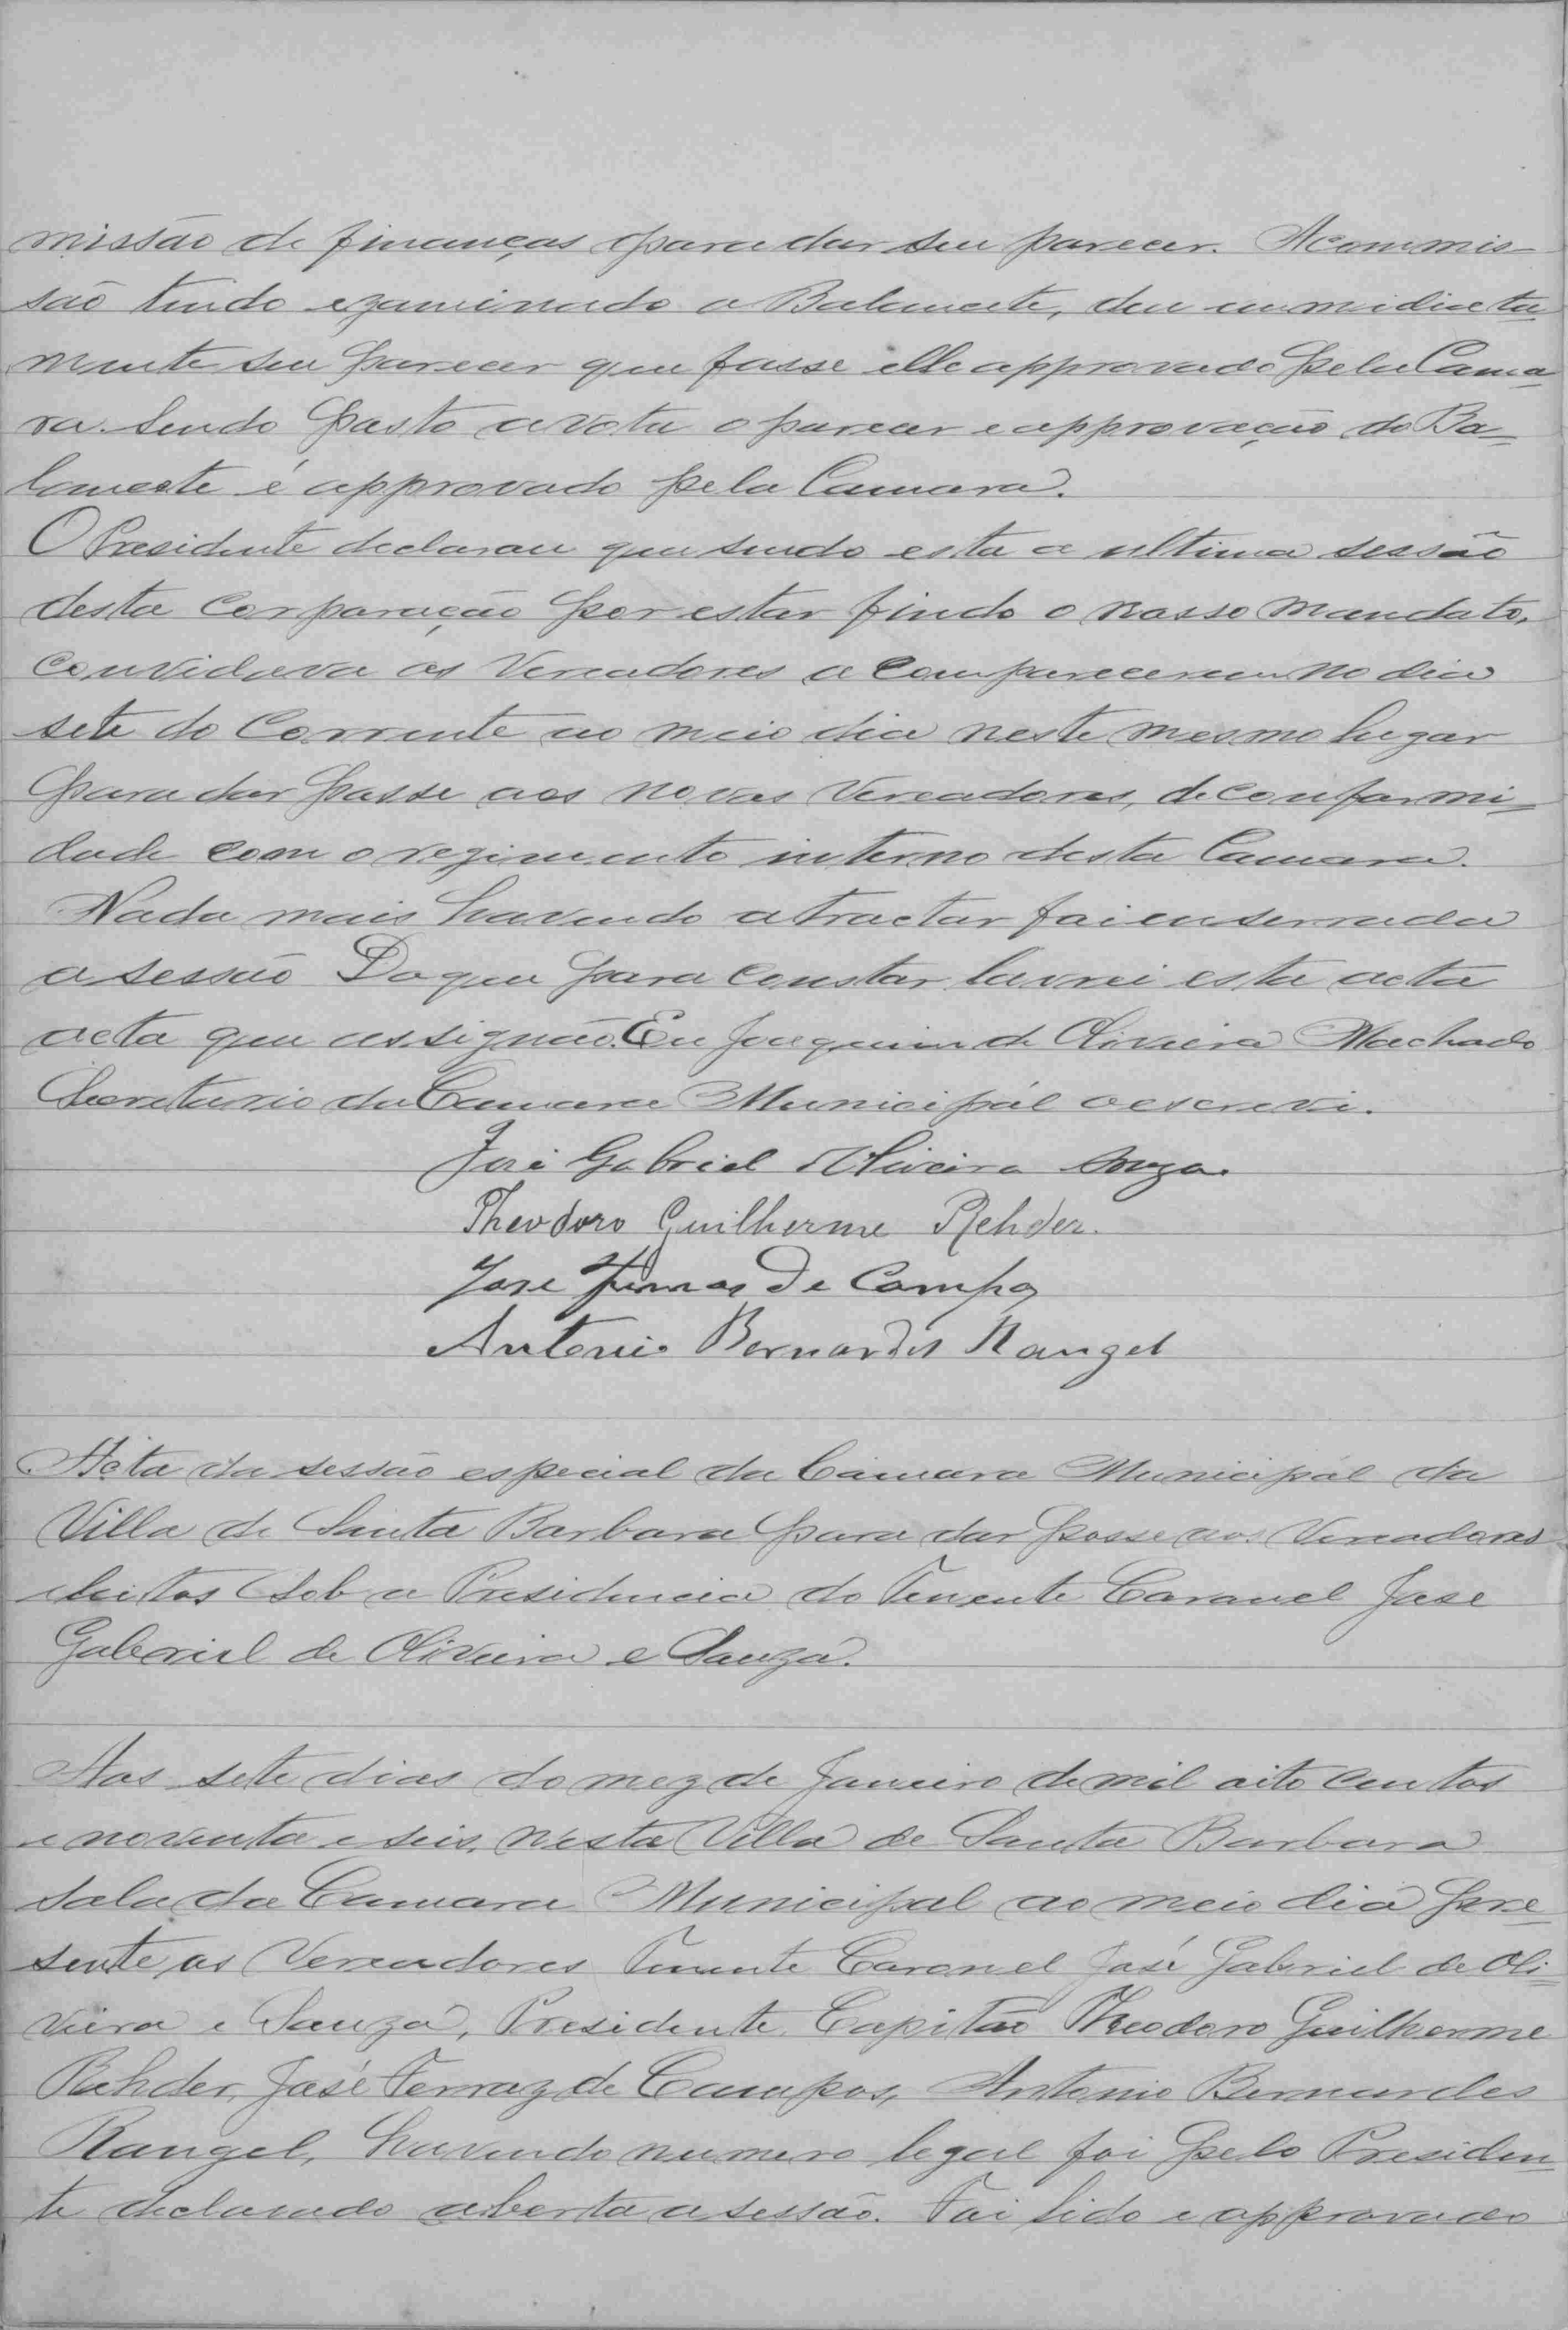 missão de finanças para dar seu parecer. A commis-
são tendo ezaminado o Balancete, deu immidiata
mente seu parecer que fosse elle approvado pela Cama
ra. Sendo posto a vota o parecer e approvação do Ba-
lancete é approvado pela Camara.
O Presidente declarou que sendo esta a ultima sessão
desta Corporação por estar findo o nosso mandato,
convidava os Vereadores a comparecerem no dia
sete do Corrente ao meio dia neste mesmo lugar
para dar posse aos novos Vereadores, de conformi-
dade com o regimento interno desta Camara.
Nada mais havendo a tractar foi enserrada
a sessão Do que para constar lavrei esta acta
acta que assignão. Eu Joaquim de Oliveira Machado
Secretario da Camara Municipal o escrevi.
José Gabriel Oliveira Souza.
Theodoro Guilherme Rehder.
Jose Ferras de Campos
Antonio Bernardes Rangel
Acta da sessão especial da Camara Municipal da
Villa de Santa Barbara para dar posse aos Vereadores
eleitos sob a Presidencia do Tenente Coronel Jose
Gaberiel de Oliveira e Souza.
Aos sete dias do mez de Janeiro de mil oito centos
e noventa e seis, nesta Villa de Santa Barbara
sala da Camara Municipal ao meio dia pre-
sente os Vereadores Tenente Coronel José Gabriel de Oli-
veira e Souza, Presidente, Capitão Theodoro Guilherme
Rehder, José Ferraz de Campos, Antonio Bernardes
Rangel, havendo numero legal foi pelo Presiden-
te declarado aberta a sessão. Foi lido e approvado